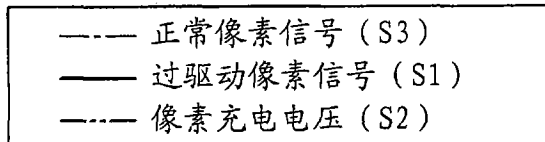 正常像素信号（S3）
过驱动像素信号（S1）
像素充电电压（S2）